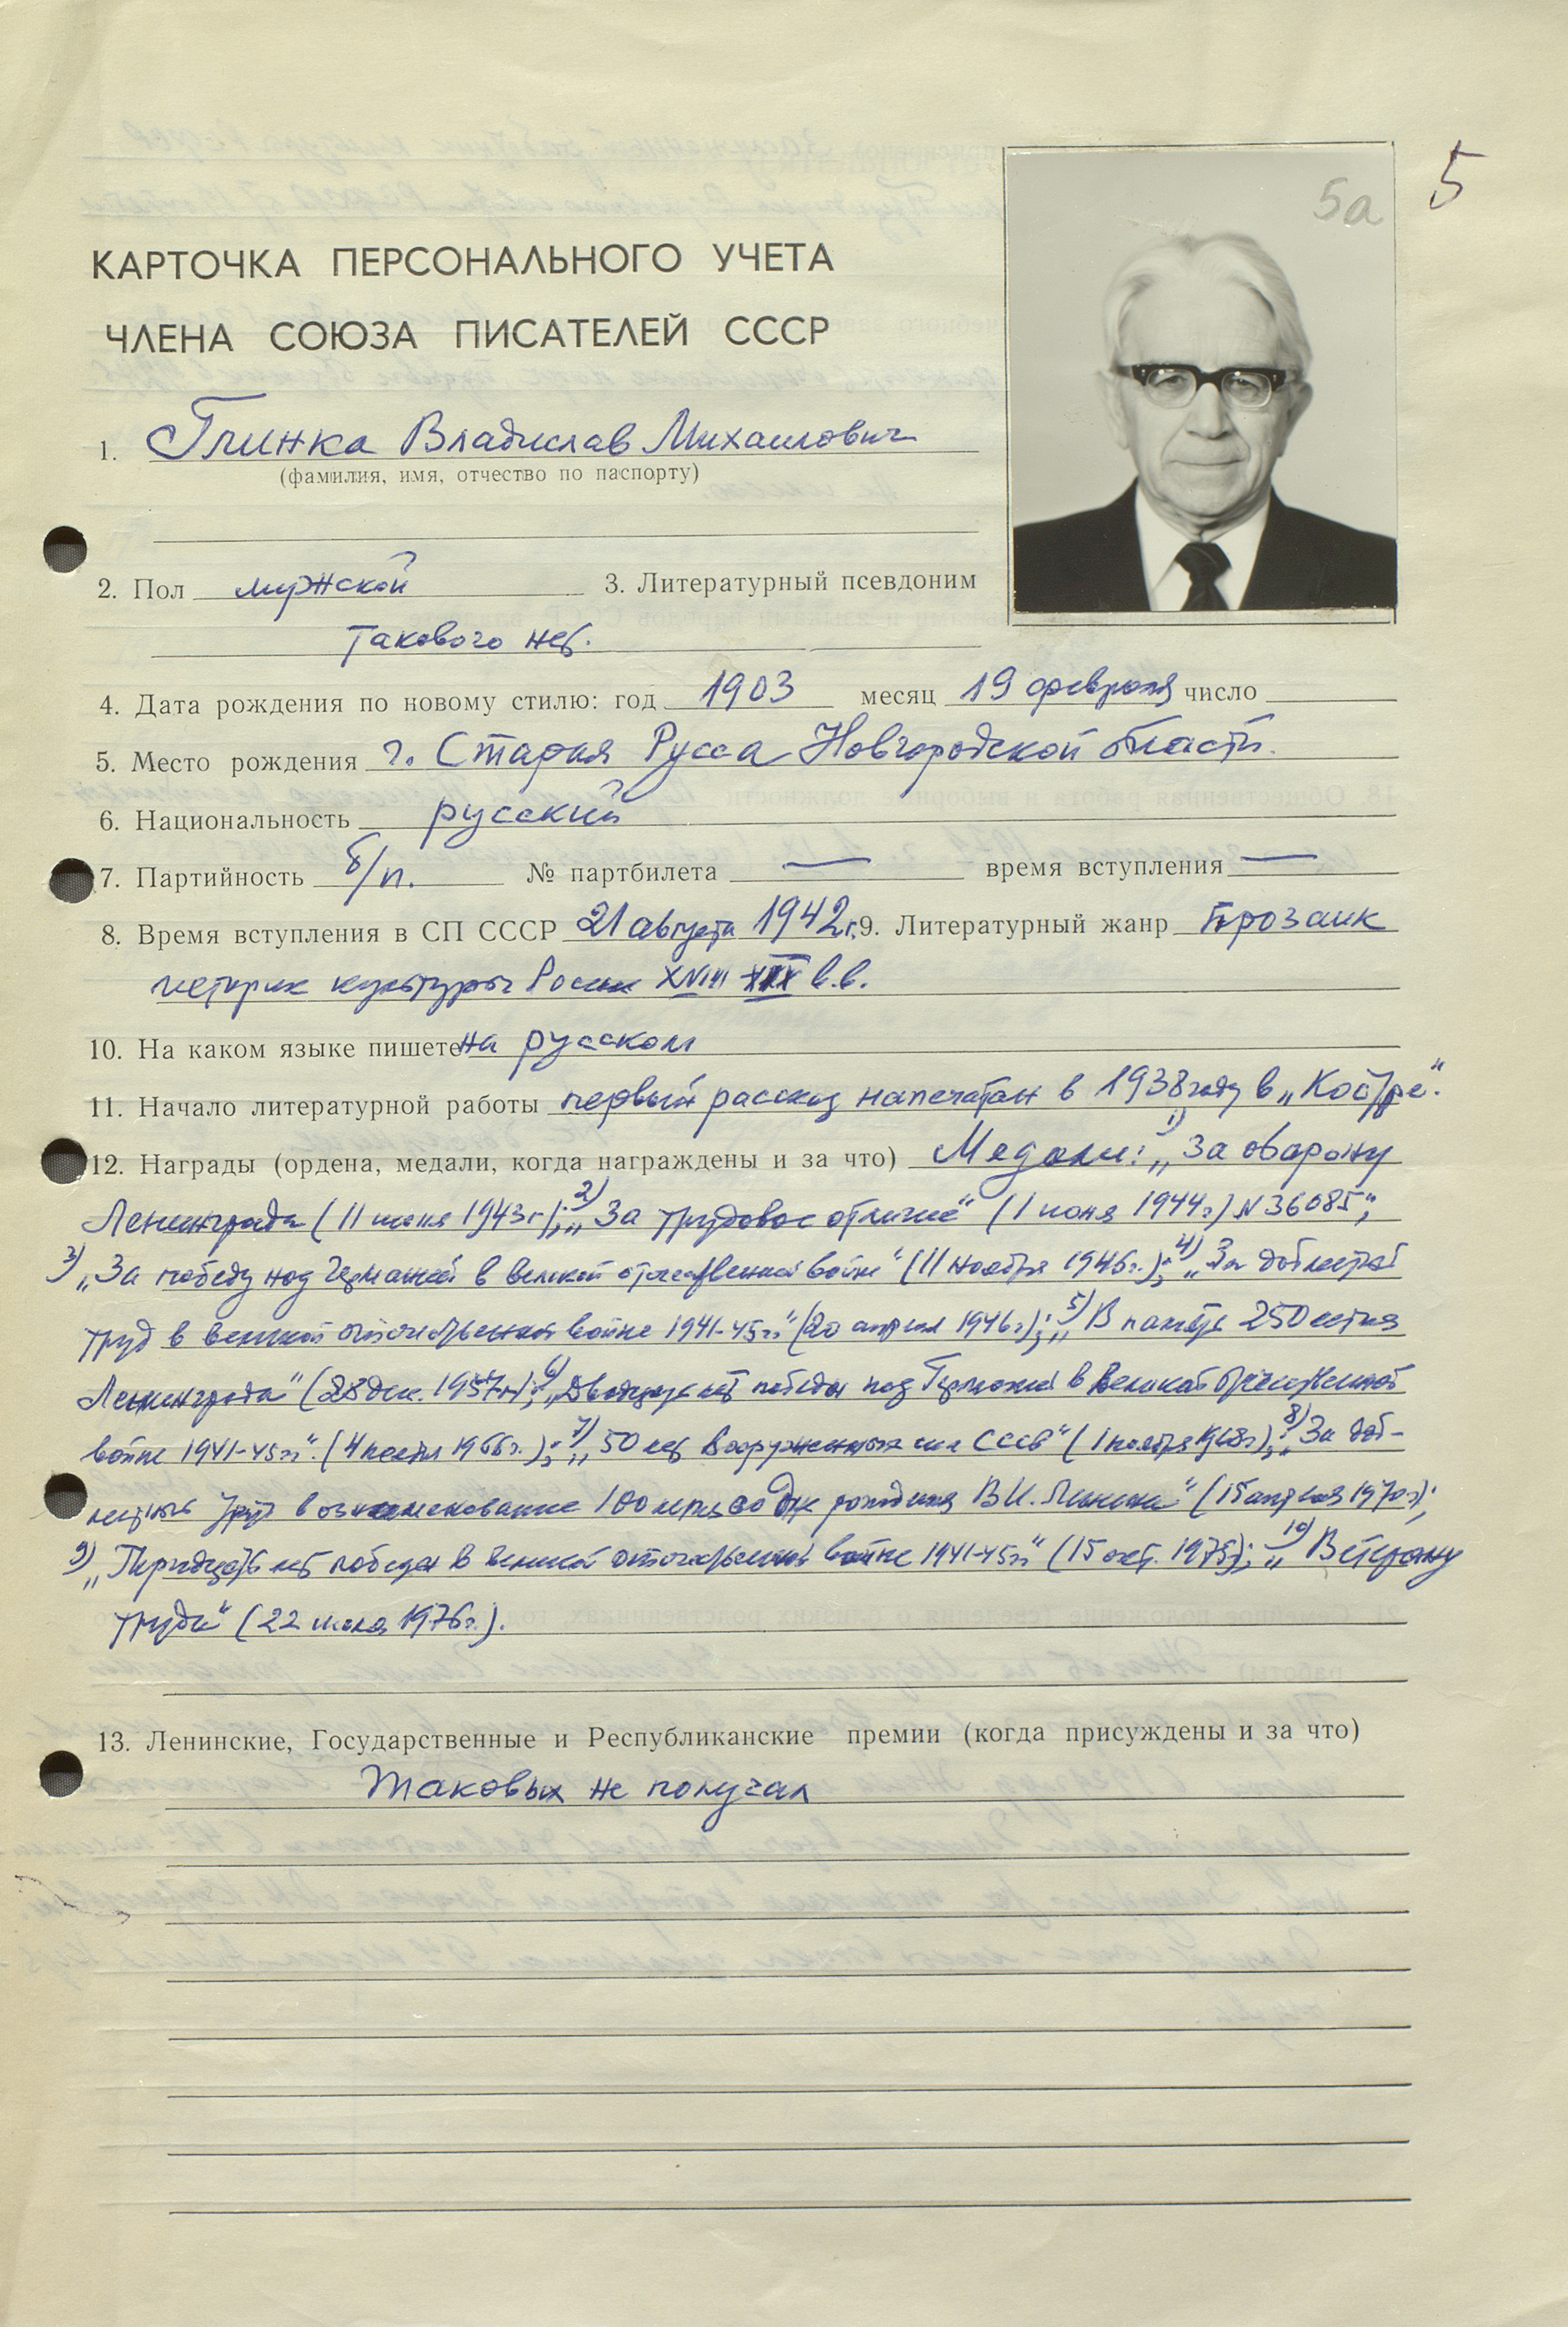 5
5а
КАРТОЧКА ПЕРСОНАЛЬНОГО УЧЕТА
ЧЛЕНА СОЮЗА ПИСАТЕЛЕЙ СССР
1. Глинка Владислав Михайлович
(фамилия, имя, отчество по паспорту)
2. Пол мужской 3. Литературный псевдоним
такового нет.
4. Дата рождения по новому стилю: год 1903 месяц 19 февраля число
5. Место рождения г. Старая Русса Новгородской области.
6. Национальность русский
7. Партийность б/п. № партбилета — время вступления —
8. Время вступления в СП СССР 21 августа 1942 г. 9. Литературный жанр прозаик
историк культуры России XVIII XIX в.в.
10. На каком языке пишете на русском
11. Начало литературной работы первый рассказ напечатан в 1938 году в „Костре".
12. Награды (ордена, медали, когда награждены и за что) Медали: 1) „За оборону
Ленинграда (11 июня 1943 г.); 2) „За трудовое отличие" (1 июня 1944 г.) № 36085;
3) „За победу над Германией в великой отечественной войне" (11 ноября 1946 г.); 4) „За доблестный
труд в великой отечественной войне 1941-45 гг." (20 апреля 1946 г.); 5) „В память 250 летия
Ленинграда" (28 дек. 1957 г.); 6) „Двадцать лет победы над Германией в Великой Отечественной
войне 1941-45 гг." (4 ноября 1966 г.); 7) „50 лет Вооруженных сил СССР" (1 ноября 1968 г.); 8) „За доб-
лестный труд в ознаменование 100 летия со дня рождения В.И. Ленина" (15 апреля 1970 г.);
9) „Тридцать лет победы в великой отечественной войне 1941-45 гг." (15 окт. 1975); 10) „Ветерану
труда" (22 1976 г.).
13. Ленинские, Государственные и Республиканские премии (когда присуждены и за что)
Таковых не получал